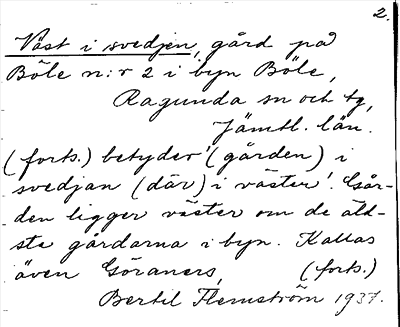 2.
Väst i svedjen, gård på
Böle n:r 2 i byn Böle,
Ragunda sn och tg,
Jämtl. län.
(forts.) betyder '(gården) i
svedjan (där) i väster'. Går-
den ligger väster om de äld-
sta gårdarna i byn. Kallas
även Göraners, (forts.)
Bertil Flemström 1937.